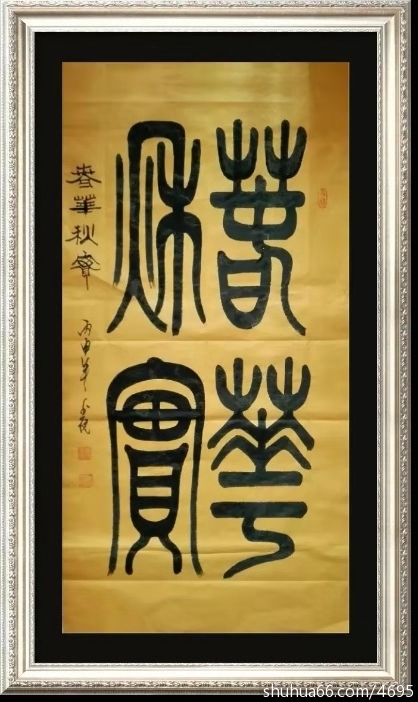 萅華
秌實
春華秋實
丙申年
shuhua66.com/4695